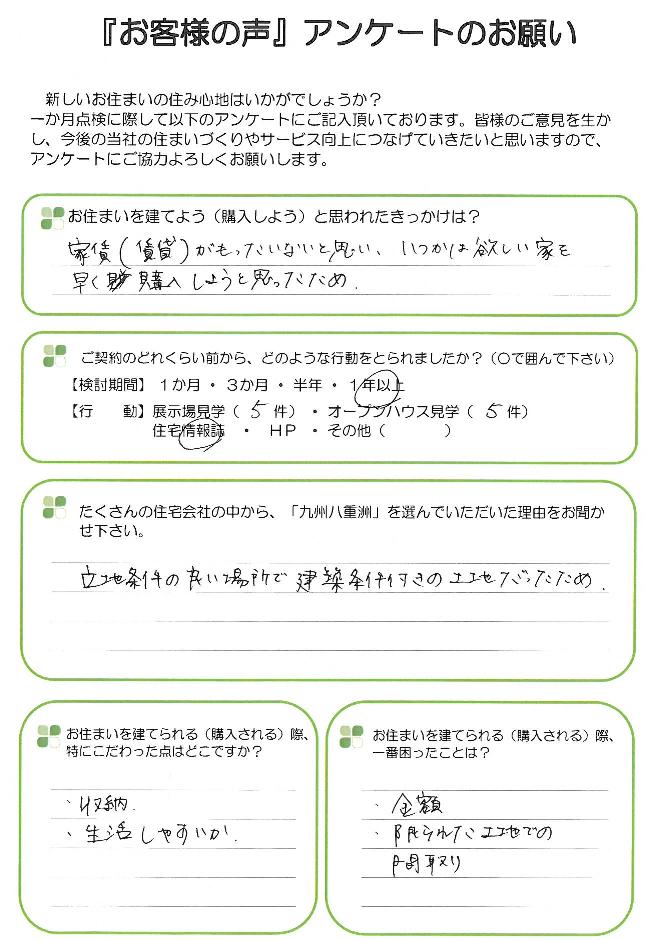 『お客様の声』アンケートのお願い
新しいお住まいの住み心地はいかがでしょうか？
一か月点検に際して以下のアンケートにご記入頂いております。皆様のご意見を生か
し、今後の当社の住まいづくりやサービス向上につなげていきたいと思いますので、
アンケートにご協力よろしくお願いします。
お住まいを建てよう（購入しよう）と思われたきっかけは？
家賃（賃貸）がもったいないと思い、いつかは欲しい家を
早く購入しようと思ったため.
ご契約のどれくらい前から、どのような行動をとられましたか？（〇で囲んで下さい）
【検討期間】 １か月 ・ ３か月 ・ 半年 ・ １年以上
【行　動】 展示場見学（ 5 件） ・ オープンハウス見学（ 5 件）
住宅情報誌 ・ ＨＰ ・ その他（　　　）
たくさんの住宅会社の中から、「九州八重洲」を選んでいただいた理由をお聞か
せ下さい。
立地条件の良い場所で建築条件付きの土地だったため.
お住まいを建てられる（購入される）際、
特にこだわった点はどこですか？
・収納.
・生活しやすいか.
お住まいを建てられる（購入される）際、
一番困ったことは？
・金額
・限られた土地での
間取り